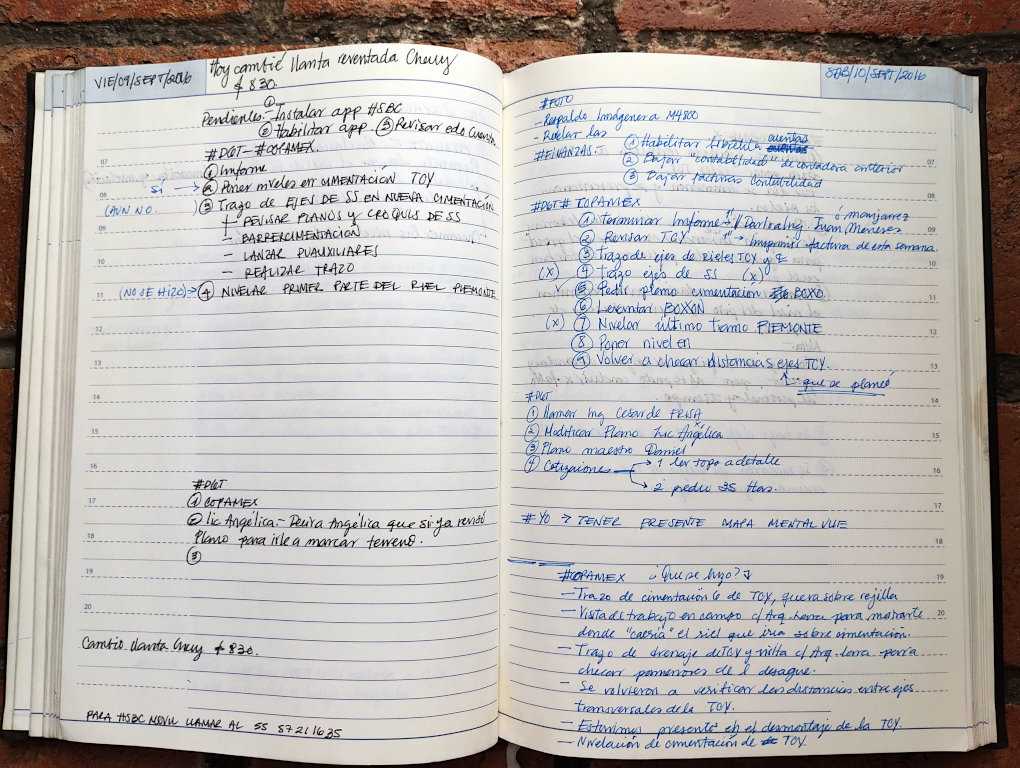 VIE/09/SEPT/2016
Hoy cambié llanta reventada Chevy
$ 830.
Pendientes:- ① Instalar app HSBC
② Habilitar app. ③ Revisar edo Cuenta
#DGT-#COPAMEX.
① Informe
Si → ② Poner niveles en CIMENTACIÓN TCY
(AUN NO. ) ③ Trazo de EJES DE SS EN NUEVA CIMENTACIÓN
REVISAR PLANOS Y CROQUIS DE SS
- BARRER CIMENTACION
- LANZAR AUXILIARES
- REALIZAR TRAZO
(NO SE HIZO) → ④ NIVELAR PRIMER PARTE DEL RIEL PIEMONTE
#DGT
① COPAMEX
② lic Angélica.- Angélica que si ya revisó
Plano para irle a marcar terreno.
③
Cambio llanta Chevy $ 830.
PARA HSBC MOVIL LLAMAR AL 55 57211635
SAB/10/SEPT/2016
#FOTO
- Respaldo Imágenes a M4800
- Revelar las
#FINANZAS.- ① Habilitar libretita cuentas
② Bajar "contabilidad" de contadora anterior
③ Bajar facturas Contabilidad
#DGT # COPAMEX
① Terminar Informe Juan Meneses ó manjarrez
② Revisar TCY → Imprimir factura de esta semana.
③ Trazo de ejes de Rieles TCY y
(X) ④ Trazo ejes de SS (X)
✓ ⑤ Pedir plano cimentación BOXO
⑥ Levantar BOXXON
(X) ⑦ Nivelar último tramo PIEMONTE
⑧ Poner nivel en
⑨ Volver a checar distancias ejes TCY.
↑ que se planeó
#DGT
① Llamar Ing Cesar de FRISA
② Modificar Plano Lic Angélica
③ Plano maestro Daniel
④ Cotizaciones → 1 ler topo a detalle
→ 2 predio 35 Has.
# YO → TENER PRESENTE MAPA MENTAL VUE
#COPAMEX ¿Que se hizo? ↓
- Trazo de cimentación 6 de TCY, que va sobre rejilla
- Visita de trabajo en campo c/Arq. para mostrarle
donde "caería" el riel que iría sobre cimentación.
- Trazo de drenaje de TCY y visita c/ Arq. Lara para
checar pormenores de l desague.
- Se volvieron a verificar las distancias entre ejes
transversales de la TCY.
- Estuvimos presentes en el desmontaje de la TCY.
- Nivelación de cimentación de TCY.
07
08
09
10
11
12
13
14
15
16
17
18
19
20
07
08
09
10
11
12
13
14
15
16
17
18
19
20